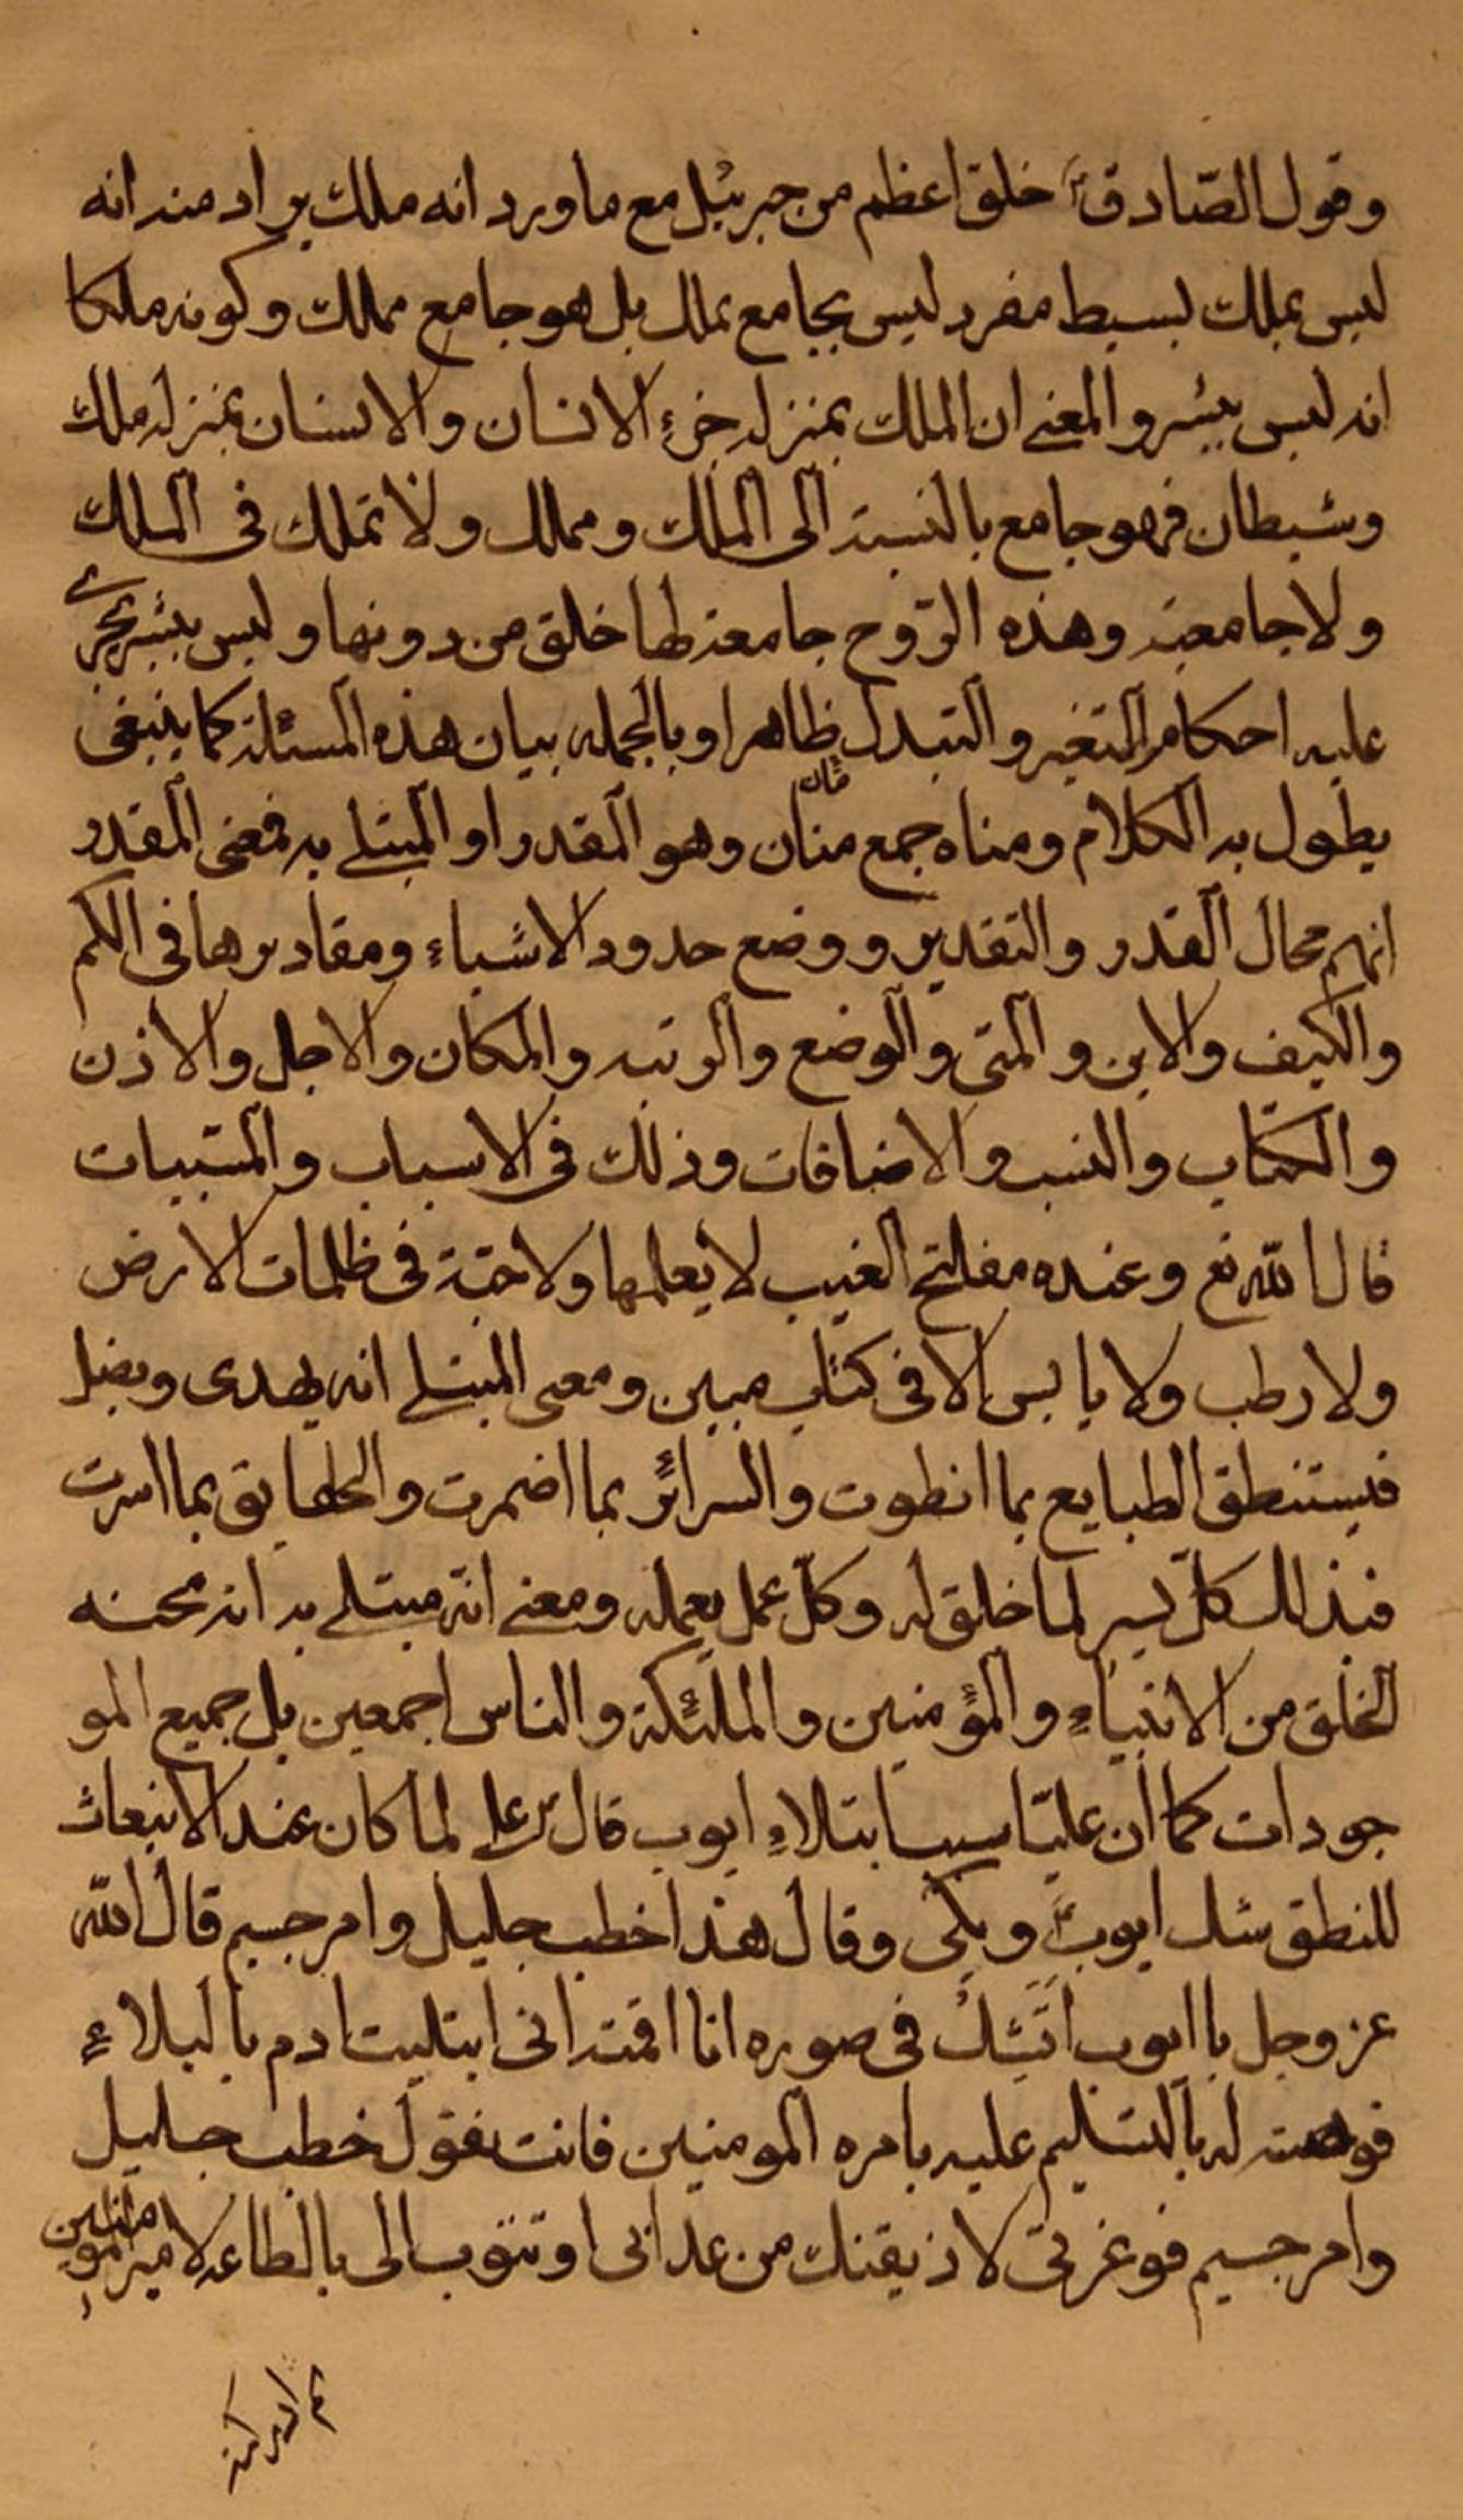 وقول الصّادقؑ خلق اعظم من جبرئيل مع ما ورد انه ملك يراد منه انه
ليس بملك بسيط مفرد ليس بجامع بملك بل هو جامع مملك وكونه ملكا
انه ليس ببشر والمعنى ان الملك بمنزله جزءِ الانسان والانسان بمنزله ملك
وشيطان فهو جامع بالنسبة الى الملك ومملك ولا تملك فى الملك
ولا جامعية وهذه الرّوح جامعة لها خلق من دونها وليس ببشر يجرى
عليه احكام التغير والتبدل ظاهرا وبالجمله بيان هذه المسئلة كما ينبغى
يطول به الكلام ومناه جمع منان وهو المقدر او المبتلى به فمعنى المقدر
انهم محال القدر والتقدير ووضع حدود الاشياء ومقاديرها فى الكم
والكيف والاين والمتى والوضع والرتبه والمكان والاجل والاذن
والكتاب والنسب والاضافات وذلك فى الاسباب والمسّببات
قال اللّه تع وعنده مفاتح الغيب لا يعلمها ولا حبّة فى ظلمات الارض
ولا رطب ولا يابس الا فى كتاب مبين ومعنى المبتلى انه يهدى ويضل
فيستنطق الطبايع بما انطوت والسرائر بما اضمرت والحقايق بما اسرت
فبذلك كلّ يسر لما خلق له وكلّ عمل يعمله ومعنى انّه مبتلى به انه محنه
الخلق من الانبياءِ والمؤمنين والملئكة والناس اجمعين بل جميع المو
جودات كما ان عليّا سبب ابتلاءِ ايوب قال ع لما كان عند الانبعاث
للنطق شك ايوبؑ وبكى وقال هذا خطب جليل وامر جسيم قال اللّه
عز وجل يا ايوب اَتَشكُ فى صوره انا اقمته انى ابتليت ادم بالبلاءِ
فوهبته له بالتسليم عليه بامره المومنين فانت تقول خطب جليل
وامر جسيم فوعزتى لاذيقنك من عذابى او تتوب الى بالطاعه لامير المومنين